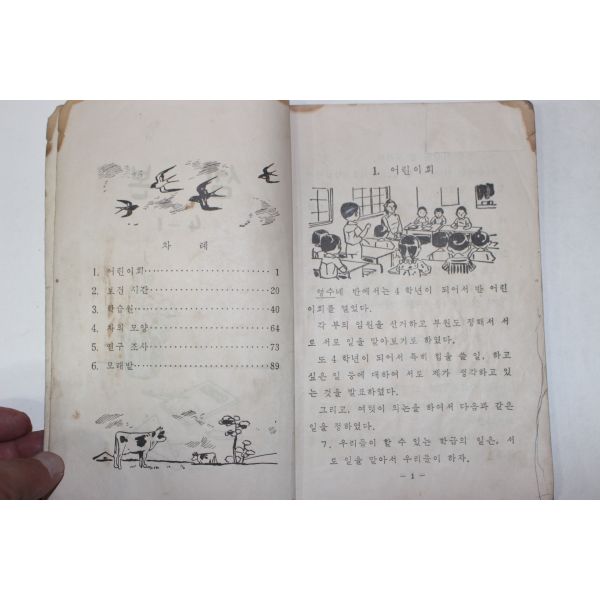 차 례
1. 어린이회 1
2. 보건 시간 20
3. 학습원 40
4. 차의 모양 64
5. 연구 조사 73
6. 모래밭 89
1. 어린이회
영수네 반에서는 4 학년이 되어서 반 어린
이회를 열었다.
각 부의 임원을 선거하고 부원도 정해서 서
로 서로 일을 맡아보기로 하였다.
또 4 학년이 되어서 특히 힘을 쓸 일, 하고
싶은 일 등에 대하여 서로 제가 생각하고 있
는 것을 발표하였다.
그리고, 여럿이 의논을 하여서 다음과 같은
일을 정하였다.
7. 우리들이 할 수 있는 학급의 일은, 서
로 일을 맡아서 우리들이 하자.
- 1 -